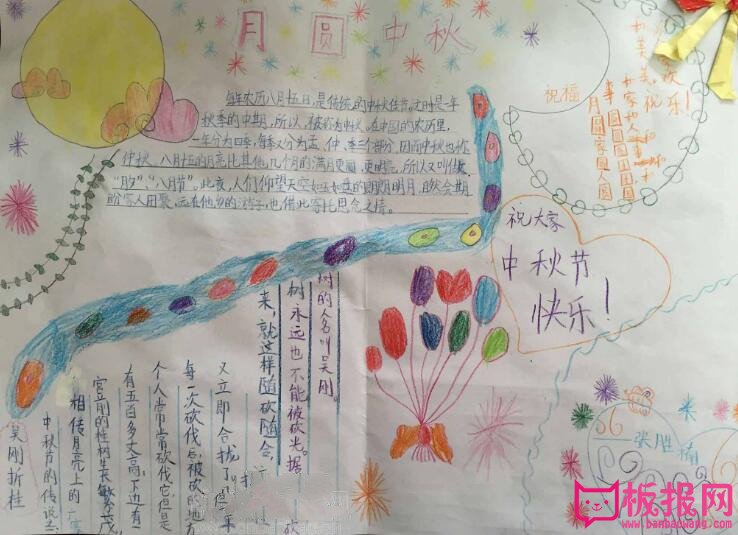 月圆中秋
每年农历八月十五日,是传统的中秋佳节。这时是一年
秋季的中期,所以,被称为中秋。在中国的农历里,
一年分为四季,每季又分为孟、仲、季三个部分,因而中秋也称
仲秋。八月十五的月亮比其他几个月的满月更圆,更明亮,所以又叫做
"月夕"、"八月节"。此夜,人们仰望天空如玉如盘的朗朗明月,自然会期
盼家人团聚。远在他乡的游子,也借此寄托思念之情。
祝福
月圆圆
家圆圆
人圆圆
欢乐!
祝大家
中秋节
快乐!
吴刚折桂
中秋节的传说之
相传月亮上的广寒
宫前的桂树生长繁茂,
有五百多丈高,下边有一
个人常常砍伐它,但是
每一次砍伐后,被砍的地方
又立即合拢了。
来,就这样随砍随合,
树永远也不能被砍光。据
树的人名叫吴刚。
张胜楠
板报网
www.banbaowang.com